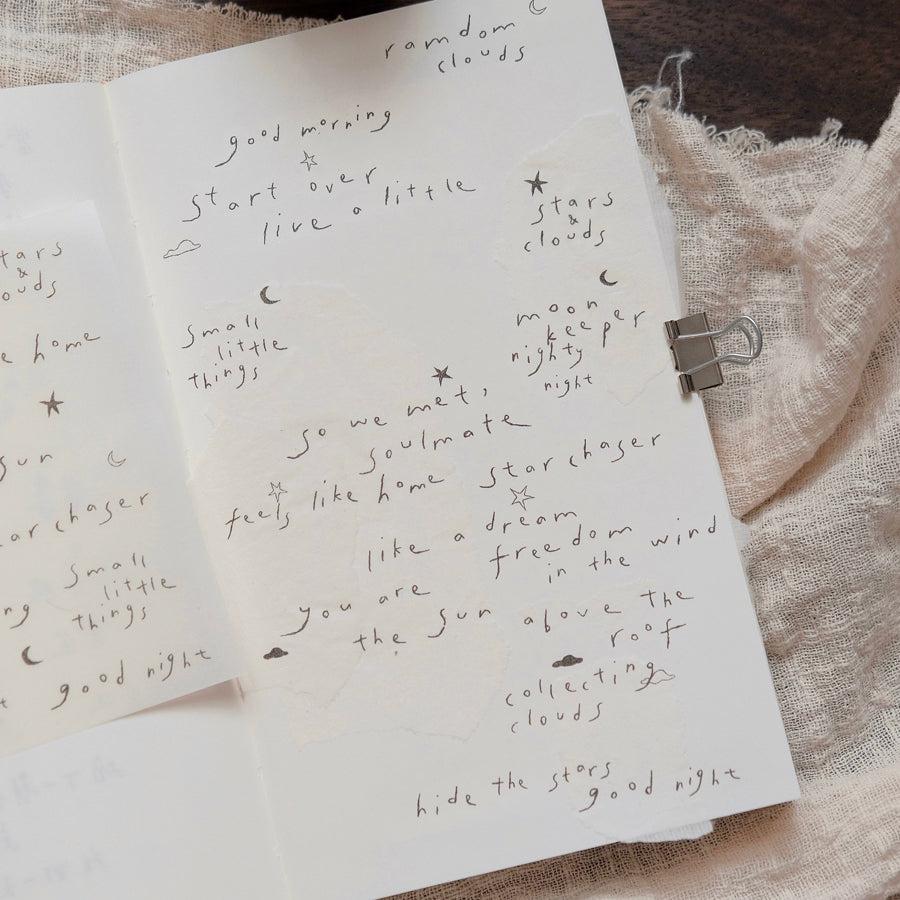 ramdom
clouds
good morning
start over
live a little
stars
&
clouds
small
little
things
moon
keeper
nighty
night
so we met,
soulmate
feels like home
star chaser
like a dream
freedom
in the wind
you are
the sun
above the
roof
collecting
clouds
hide the stars
good night
tars
&
ouds
e home
sun
ar chaser
small
little
things
ng
good night